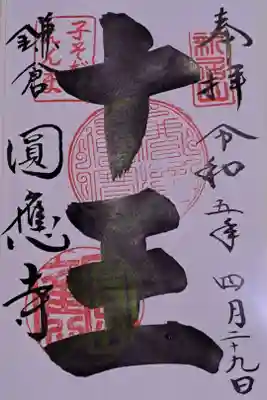 奉拝
令和五年四月二十九日
十王
鎌倉
圓應寺
子そだて
えんま